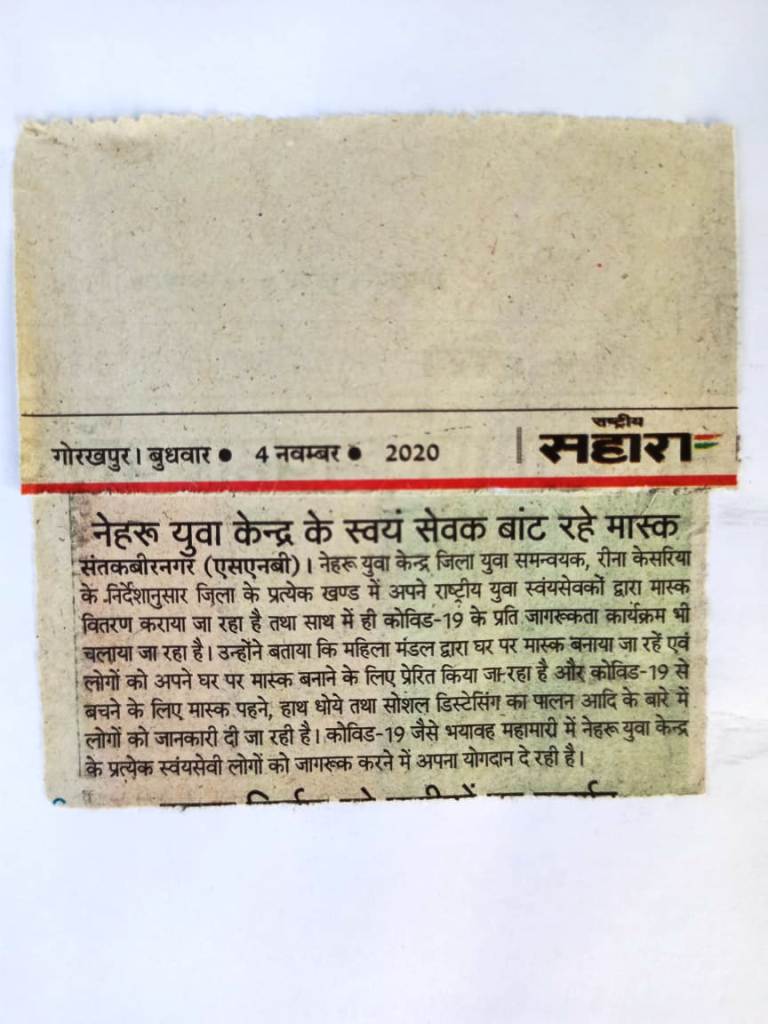 गोरखपुर। बुधवार ● 4 नवम्बर ● 2020
राष्ट्रीय
सहारा
नेहरू युवा केन्द्र के स्वयं सेवक बांट रहे मास्क
संतकबीरनगर (एसएनबी)। नेहरू युवा केन्द्र जिला युवा समन्वयक, रीना केसरिया
के निर्देशानुसार जिला के प्रत्येक खण्ड में अपने राष्ट्रीय युवा स्वंयसेवकों द्वारा मास्क
वितरण कराया जा रहा है तथा साथ में ही कोविड-19 के प्रति जागरूकता कार्यक्रम भी
चलाया जा रहा है। उन्होंने बताया कि महिला मंडल द्वारा घर पर मास्क बनाया जा रहें एवं
लोगों को अपने घर पर मास्क बनाने के लिए प्रेरित किया जा रहा है और कोविड-19 से
बचने के लिए मास्क पहने, हाथ धोये तथा सोशल डिस्टेसिंग का पालन आदि के बारे में
लोगों को जानकारी दी जा रही है। कोविड-19 जैसे भयावह महामारी में नेहरू युवा केन्द्र
के प्रत्येक स्वंयसेवी लोगों को जागरूक करने में अपना योगदान दे रही है।